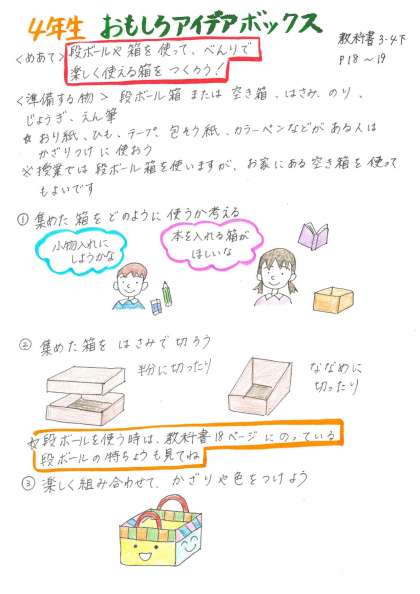 4年生 おもしろアイデアボックス
教科書3・4下
P18～19
<めあて> 段ボールや箱を使って、べんりで
楽しく使える箱をつくろう!
<準備する物> 段ボール箱 または 空き箱、はさみ、のり、
じょうぎ、えん筆
☆おり紙、ひも、テープ、包そう紙、カラーペンなどがある人は
かざりつけに使おう
※授業では段ボール箱を使いますが、お家にある空き箱を使って
もよいです
① 集めた箱をどのように使うか考える
小物入れに
しようかな
本を入れる箱が
ほしいな
② 集めた箱を はさみで切ろう
半分に切ったり
ななめに
切ったり
☆段ボールを使う時は、教科書18ページにのっている
段ボールの特ちょうも見てね
③ 楽しく組み合わせて、かざりや色をつけよう